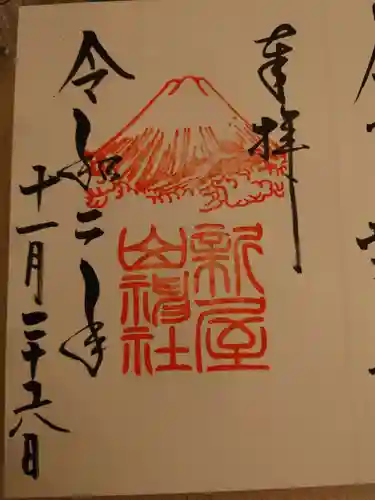 奉拝
新屋
山神社
令和二年
十一月二十六日